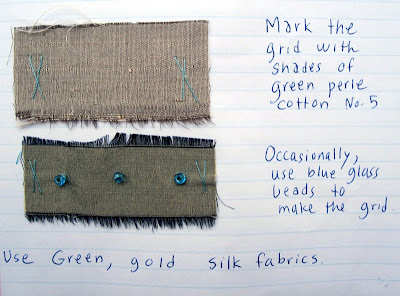 Mark the
grid with
shades of
green perle
cotton No. 5
Occasionally,
use blue glass
beads to
make the grid.
Use Green, gold silk fabrics.